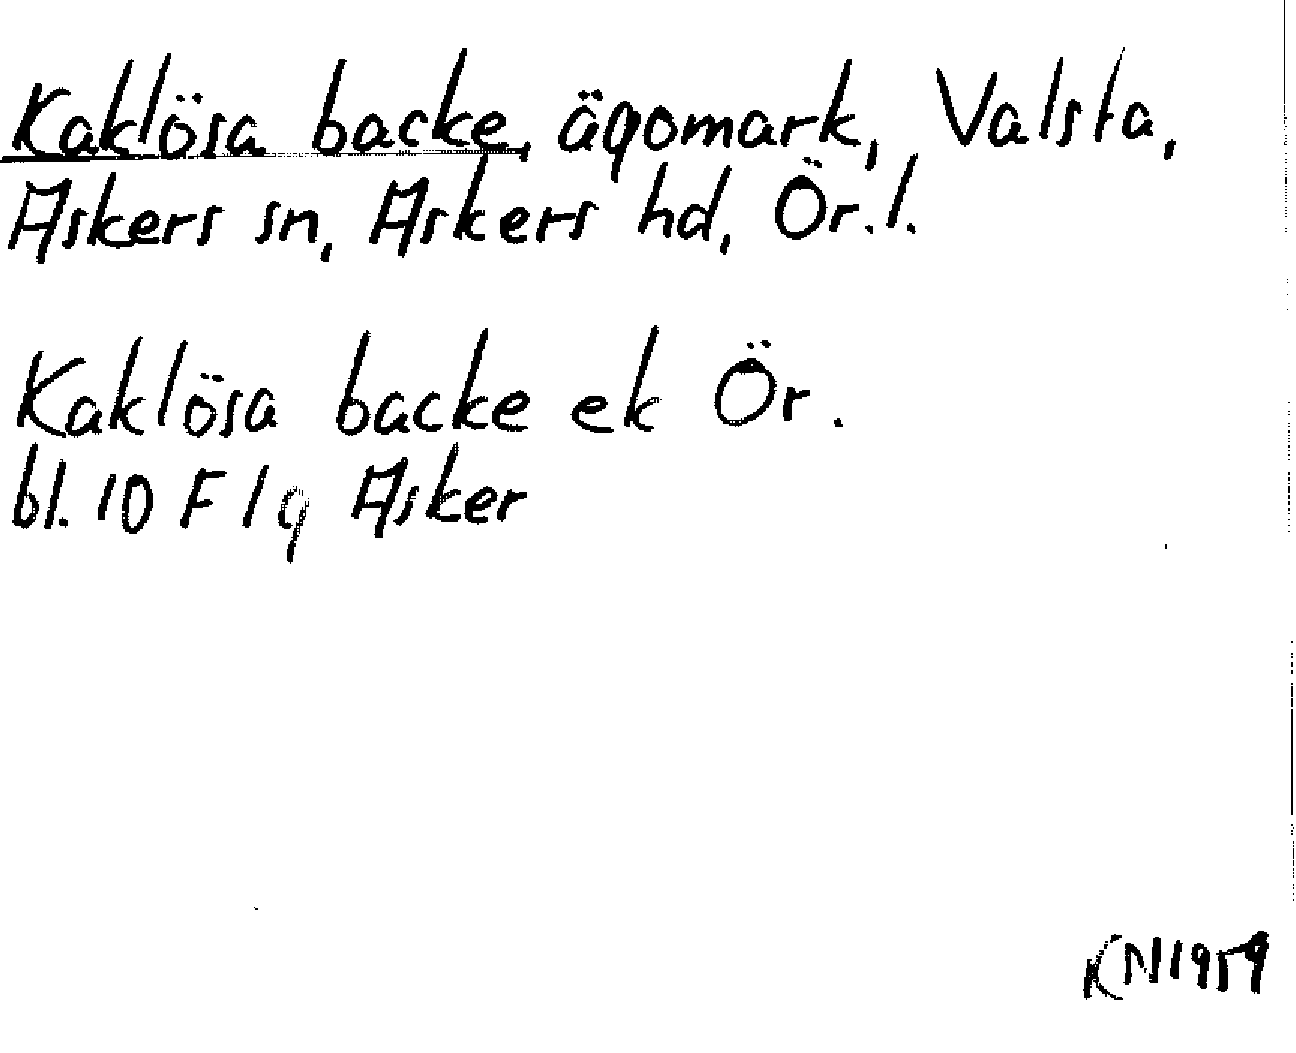 Kaklösa backe, ägomark, Valsta,
Askers sn, Askers hd, Ör.l.
Kaklösa backe ek Ör.
bl. 10 F 1g Asker
KN 1959